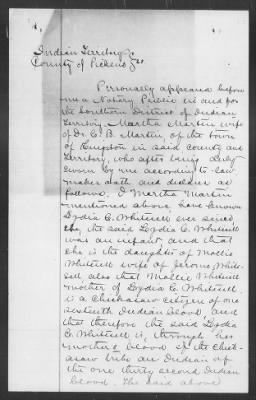 Indian Territory
County of Pickens } ss
Personally appeared before
me a Notary Public in and for
the Southern District of Indian
Territory, Martha Martin wife
of Dr. C. B. Martin, of the town
of Kingston in said county and
Territory, who after being duly
sworn by me according to law
makes oath and declares as
follows, I Martha Martin
mentioned above, have known
Lydia C. Whitsell ever since
she, the said Lydia C. Whitsell
was an infant, and that
she is the daughter of Mollie
Whitsell wife of Jerome Whit-
sell also that Mollie Whitsell
mother of Lydia C. Whitsell
is a Chickasaw citizen of one
sixteenth Indian blood, and
that therefore the said Lydia
C. Whitsell is, through her
mother's blood of the Chick-
asaw tribe an Indian of
the one thirty second Indian
blood. The said above